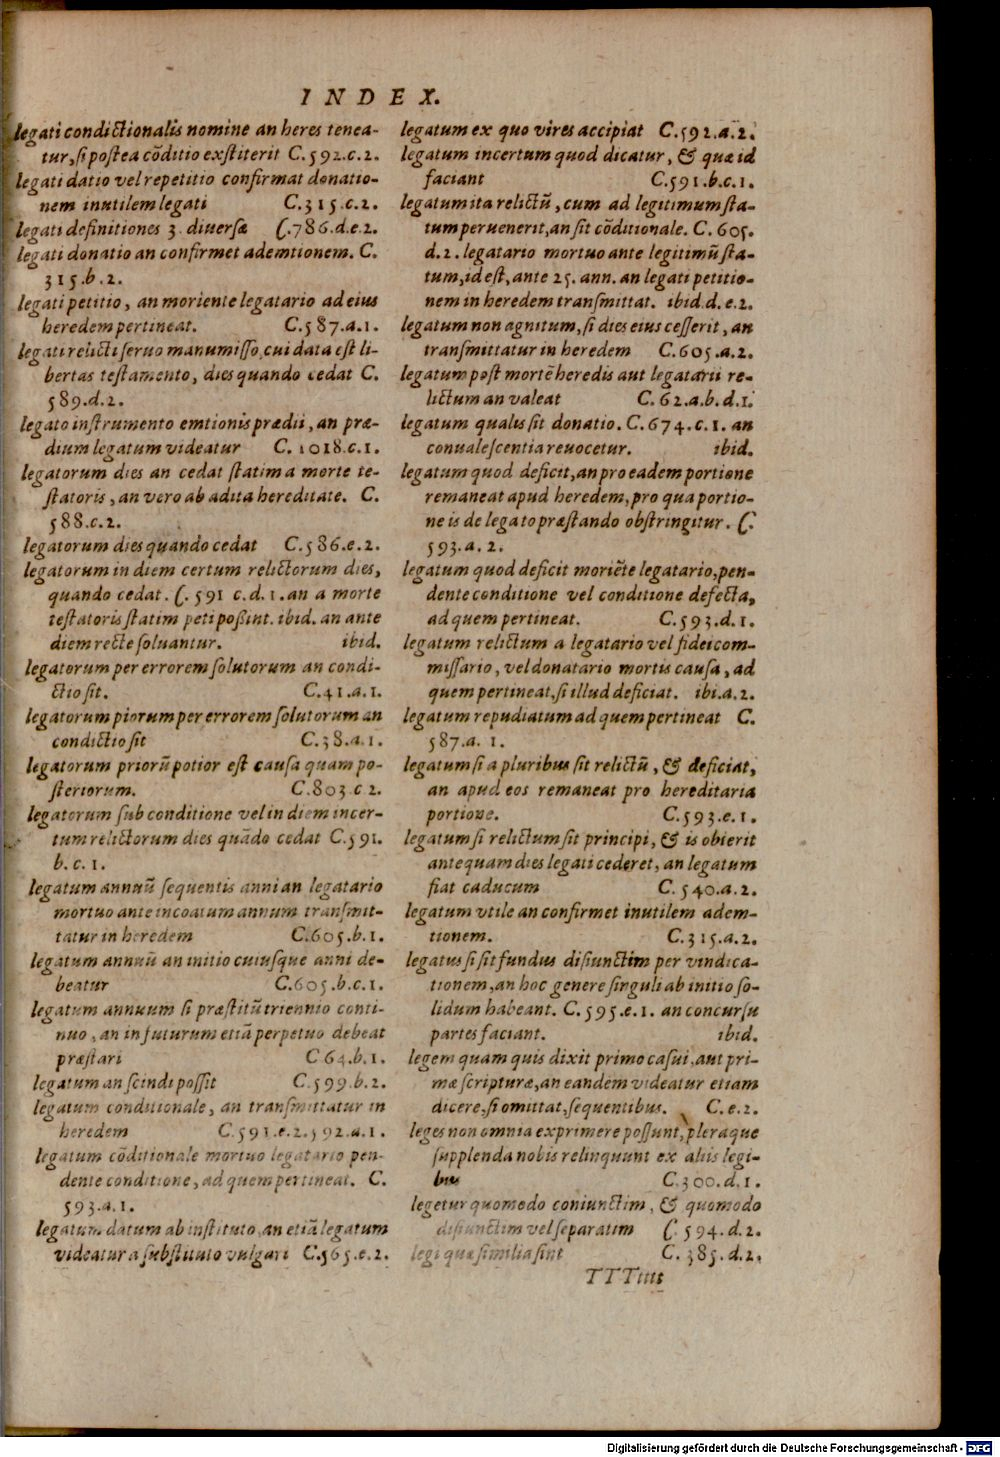 INDEX.
legati condictionalis nomine an heres tenea-
tur, si postea cõditio exstiterit C.592.c.2.
legati datio vel repetitio confirmat donatio-
nem inutilem legati C.315.c.2.
legati definitiones 3. diuersæ C.786.d.e.2.
legati donatio an confirmet ademtionem. C.
315.b.2.
legati petitio, an moriente legatario ad eius
heredem pertineat. C.587.a.1.
legati relicti seruo manumisso, cui data est li-
bertas testamento, dies quando cedat C.
589.d.2.
legato instrumento emtionis prædii, an præ-
dium legatum videatur C. 1018.c.1.
legatorum dies an cedat statim a morte te-
statoris, an vero ab adita hereditate. C.
588.c.2.
legatorum dies quando cedat C.586.e.2.
legatorum in diem certum relictorum dies,
quando cedat. C.591 c.d.1. an a morte
testatoris statim peti poßint. ibid. an ante
diem recte soluantur. ibid.
legatorum per errorem solutorum an condi-
ctio sit. C.41.a.1.
legatorum piorum per errorem solutorum an
condictio sit C.38.a.1.
legatorum priorũ potior est causa quam po-
steriorum. C.803 c 2.
legatorum sub conditione vel in diem incer-
tum relictorum dies quãdo cedat C.591.
b.c.1.
legatum annuũ sequentis anni an legatario
mortuo ante incoatum annum transmit-
tatur in heredem C.605.b.1.
legatum annuũ an initio cuiusque anni de-
beatur C.605.b.c.1.
legatum annuum si præstitũ triennio conti-
nuo, an in futurum etiã perpetuo debeat
præstari C 64.b.1.
legatum an scindi possit C.599.b.2.
legatum conditionale, an transmittatur in
heredem C.591.e.2.592.a.1.
legatum cõditionale mortuo legatario pen-
dente conditione, ad quem pertineat. C.
593.a.1.
legatum datum ab instituto, an etiã legatum
videatur a substituto vulgari C.565.e.2.
legatum ex quo vires accipiat C.592.a.2.
legatum incertum quod dicatur, & quæ id
faciant C.591.b.c.1.
legatum ita relictũ, cum ad legitimum sta-
tum peruenerit, an sit cõditionale. C.605.
d.2. legatario mortuo ante legitimũ sta-
tum, id est, ante 25. ann. an legati petitio-
nem in heredem transmittat. ibid.d.e.2.
legatum non agnitum, si dies eius cesserit, an
transmittatur in heredem C.605.a.2.
legatum post mortẽ heredis aut legatarii re-
lictum an valeat C.62.a.b.d.1.
legatum qualis sit donatio. C.674.c.1. an
conualescentia reuocetur. ibid.
legatum quod deficit, an pro eadem portione
remaneat apud heredem, pro qua portio-
ne is de legato præstando obstringitur. C.
593.a.2.
legatum quod deficit moriẽte legatario, pen-
dente conditione vel conditione defecta,
ad quem pertineat. C.593.d.1.
legatum relictum a legatario vel fideicom-
missario, vel donatario mortis causa, ad
quem pertineat, si illud deficiat. ibi.a.2.
legatum repudiatum ad quem pertineat C.
587.a.1.
legatum si a pluribus sit relictũ, & deficiat,
an apud eos remaneat pro hereditaria
portione. C.593.e.1.
legatum si relictum sit principi, & is obierit
antequam dies legati cederet, an legatum
fiat caducum C.540.a.2.
legatum vtile an confirmet inutilem adem-
tionem. C.315.a.2.
legatus si sit fundus disiunctim per vindica-
tionem, an hoc genere singuli ab initio so-
lidum habeant. C.595.e.1. an concursu
partes faciant. ibid.
legem quam quis dixit primo casui, aut pri-
mæ scripturæ, an eandem videatur etiam
dicere, si omittat, sequentibus. C.e.2.
leges non omnia exprimere possunt, pleraque
supplenda nobis relinquunt ex aliis legi-
bus C.300.d.1.
legetur quomodo coniunctim, & quomodo
disiunctim vel separatim C.594.d.2.
legi quæ similia sint C.385.d.2.
TTTiiii
Digitalisierung gefördert durch die Deutsche Forschungsgemeinschaft - DFG